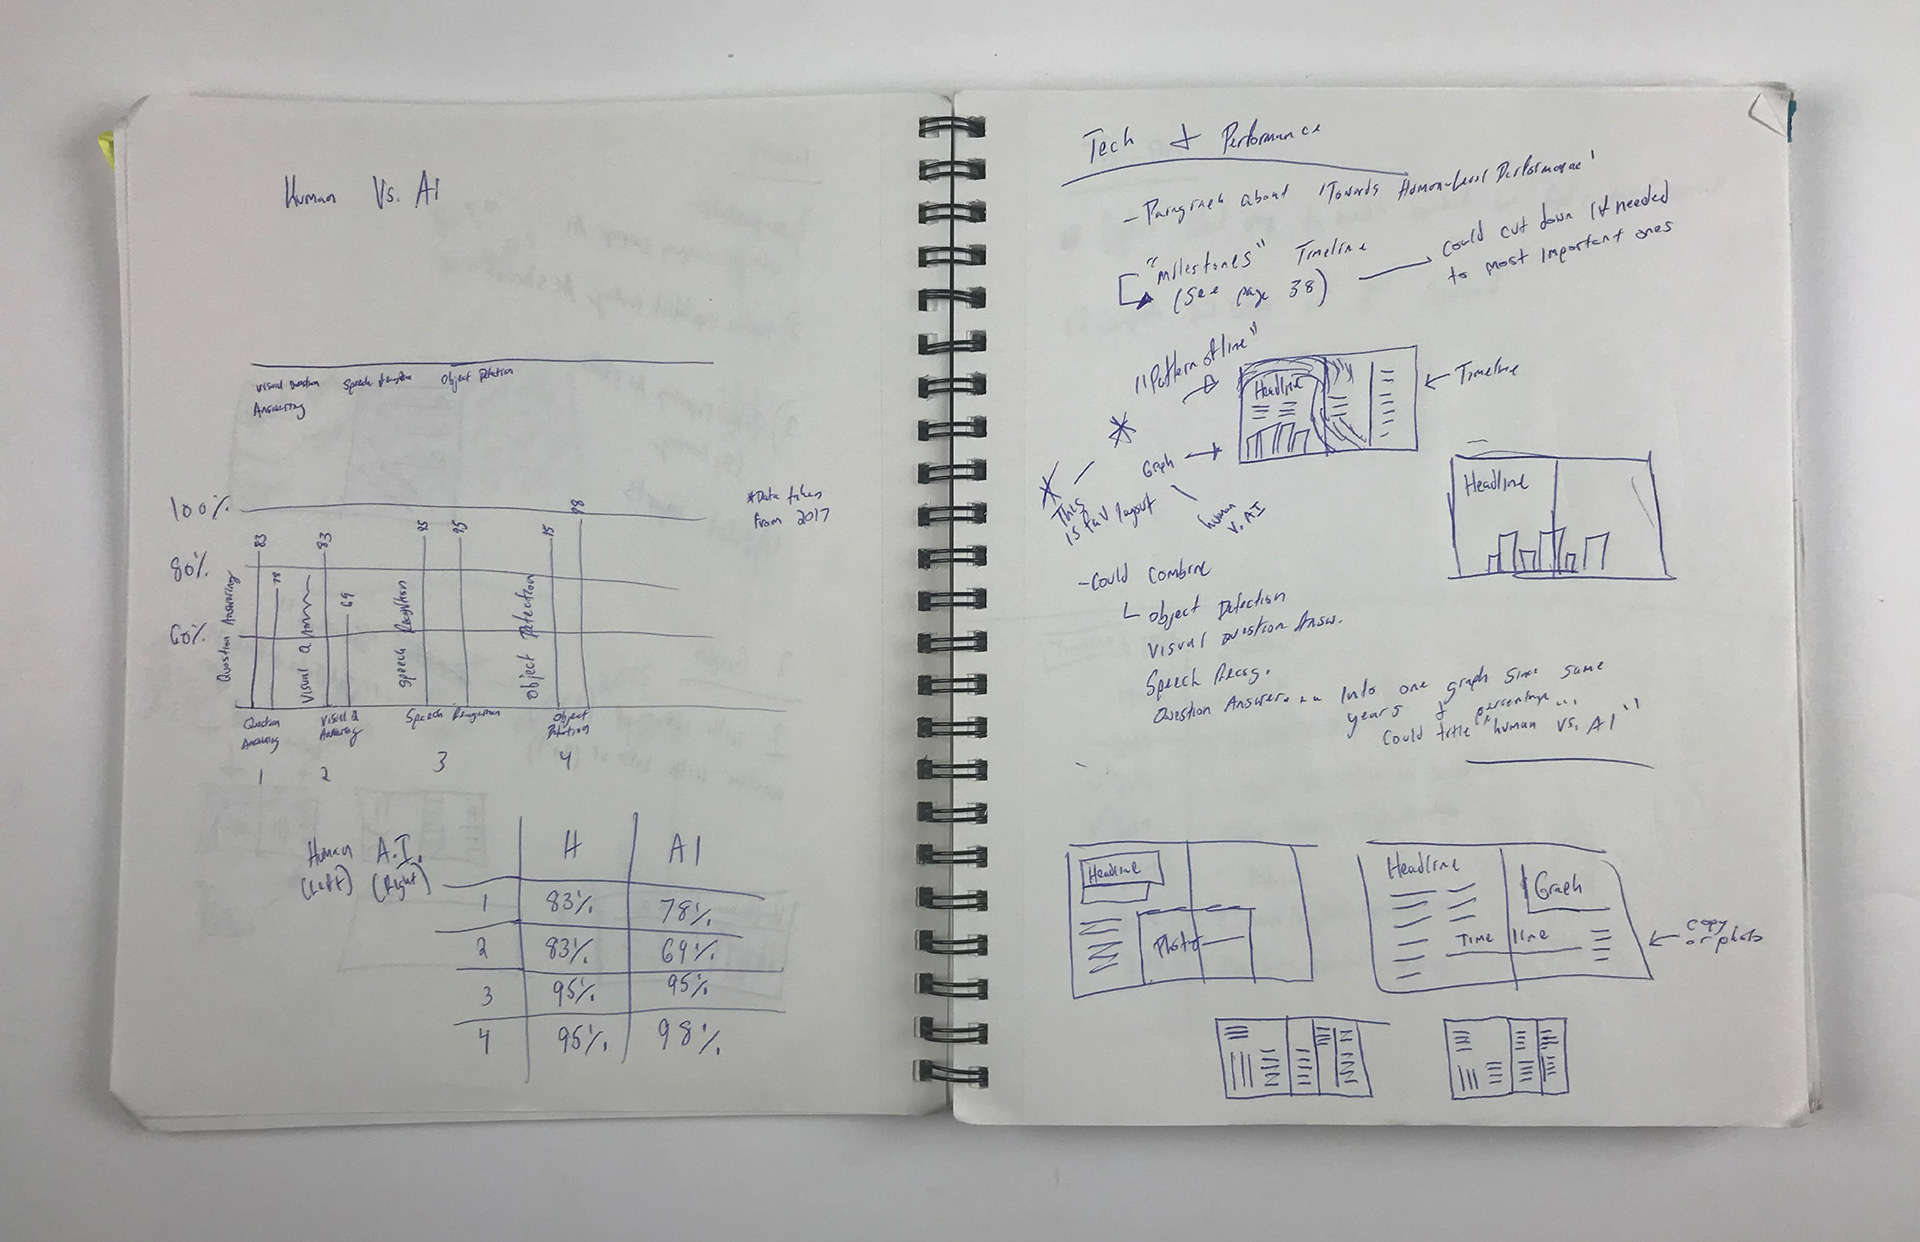 Human Vs. AI
Visual Question Answering
Speech
Object
*Data taken
from 2017
100%
80%
60%
83
78
83
69
95
95
95
98
Question Answering
Visual Q
Speech Recognition
Object Detection
Question
Answering
Visual Q
Answering
Speech
Object
1 2 3 4
Human A.I.
(Left) (Right)
H AI
1 83% 78%
2 83% 69%
3 95% 95%
4 95% 98%
Tech & Performance
- Paragraph about "Towards Human-Level Performance"
"Milestones" Timeline
(See page 38)
could cut down if needed
to most important ones
Headline
Timeline
Graph
This
is fav layout
human
v. AI
Headline
- Could combine
Object Detection
Visual Question Answ.
Speech Recog.
Question Answer. into one graph since same
years & percentage...
Could title "human vs. AI"
Headline
Photo
Headline
Graph
Time line
copy
or photo